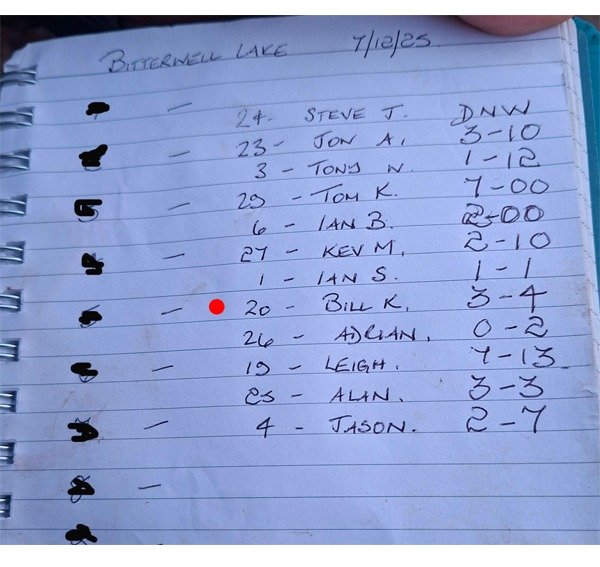 BITTERWELL LAKE 7/12/25.
24. STEVE J. DNW
23 - JON A. 3-10
3 - TONY N. 1-12
29 - TOM K. 7-00
6 - IAN B. 2-00
27 - KEV M. 2-10
1 - IAN S. 1-1
20 - BILL K. 3-4
26 - ADRIAN. 0-2
19 - LEIGH. 7-13
25 - ALAN. 3-3
4 - JASON. 2-7